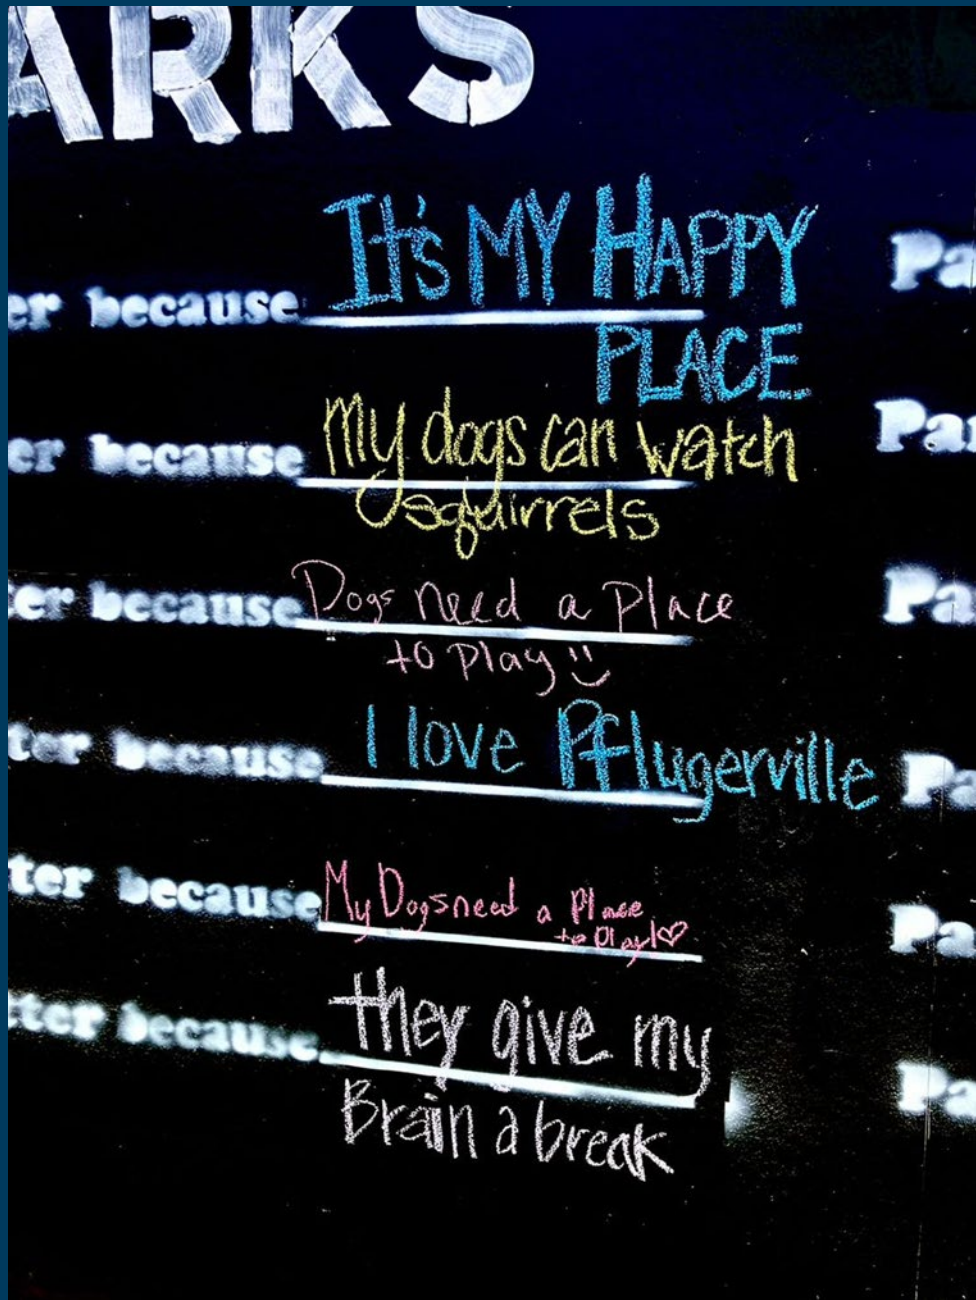 ARKS
It's MY HAPPY
er because
PLACE
Pa
er because My dogs can watch
squirrels
Par
ter because Dogs need a place
to play
Pa
ter because I love Pflugerville
Pa
ter because My Dogs need a Place
to Play! ♡
Pa
tter because they give my
Brain a break
Pa